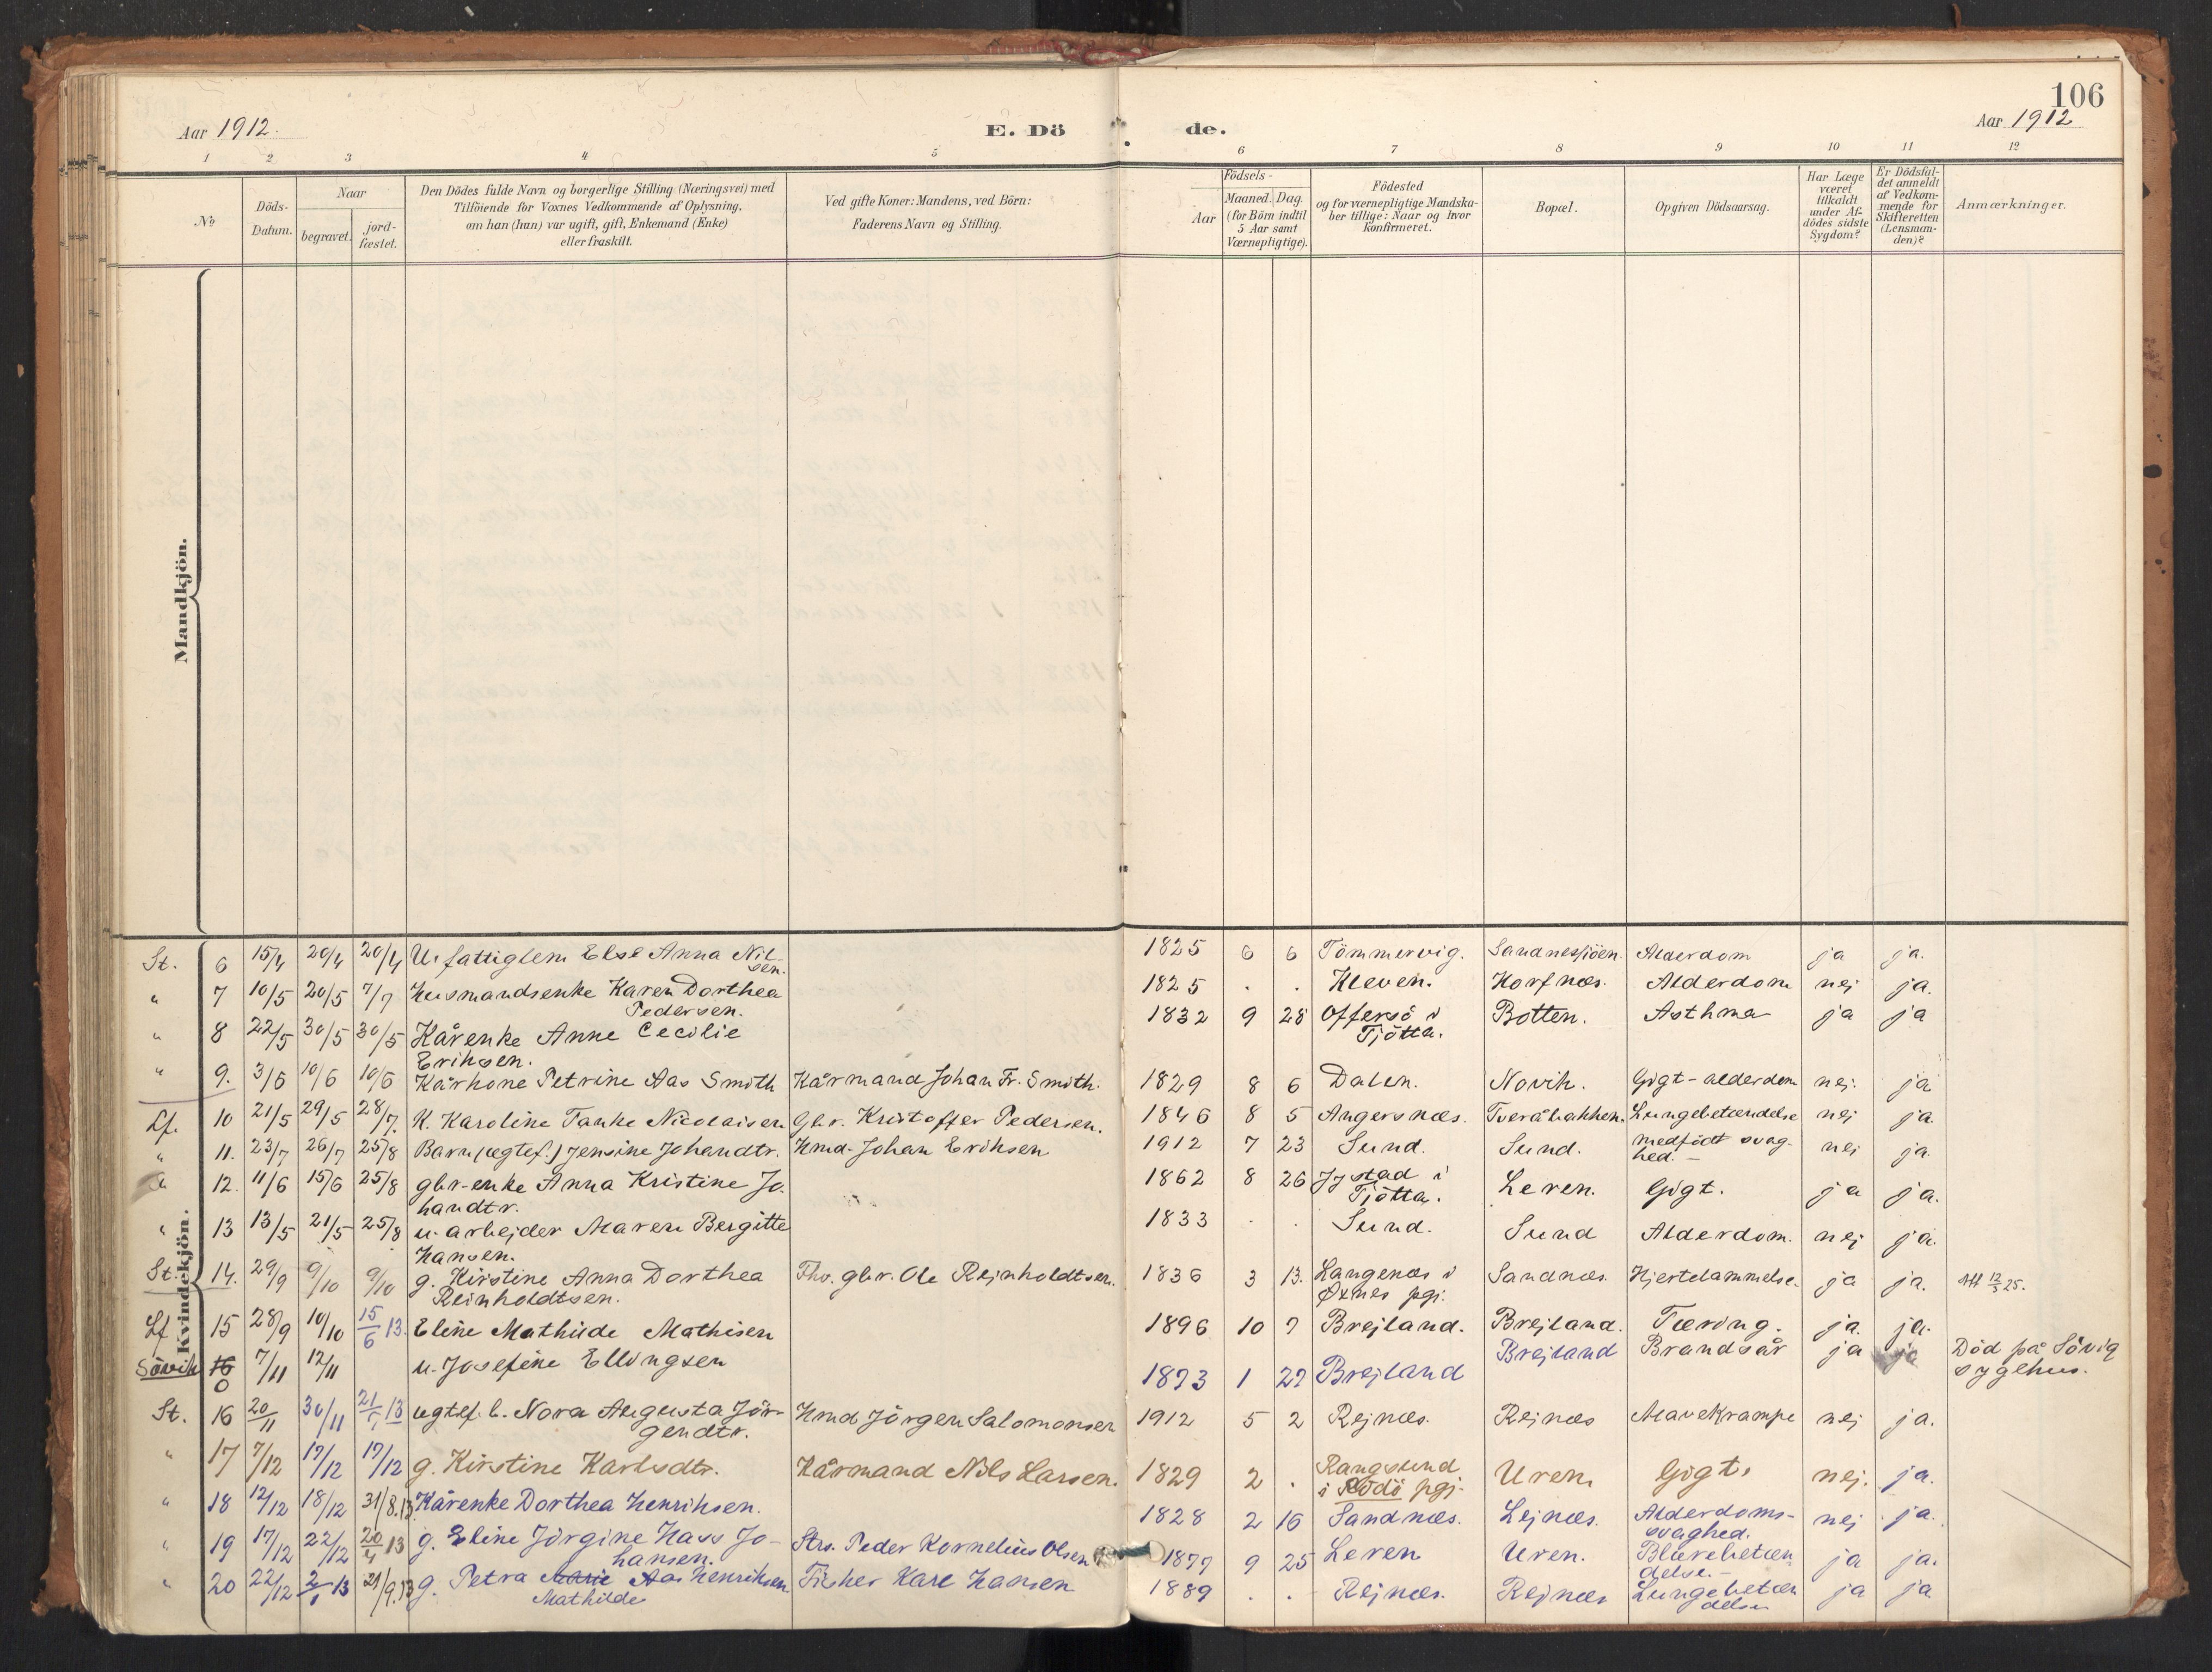 106
Aar 1912.
E. Dö
de.
Aar 1912
1 2 3 4 5 6 7 8 9 10 11 12
No
Döds-
Datum.
Naar
begravet.
jord-
fæstet.
Den Dödes fulde Navn og borgerlige Stilling (Næringsvei) med
Tilföiende for Voxnes Vedkommende af Oplysning,
om han (hun) var ugift, gift, Enkemand (Enke)
eller fraskilt.
Ved gifte Koner: Mandens, ved Börn:
Faderens Navn og Stilling.
Födsels-
Aar
Maaned. Dag.
(for Börn indtil
5 Aar samt
Værnepligtige).
Födested
og for værnepligtige Mandska-
ber tillige: Naar og hvor
konfirmeret.
Bopæl.
Opgiven Dödsaarsag.
Har Læge
været
tilkaldt
under Af-
dödes sidste
Sygdom?
Er Dödsfal-
det anmeldt
af Vedkom-
mende for
Skifteretten
(Lensman-
den)?
Anmærkninger.
Mandkjön.
Kvindekjön.
St. 6 15/4 20/4 20/4 U. fattiglem Else Anna Nil-
sen. 1825 6 6 Tömmervig. Sandnessjöen. Alderdom ja ja.
" 7 10/5 20/5 7/7 Husmandsenke Karen Dorthea
Pedersen. 1825 . . Kleven. Korfnæs. Alderdom nej ja.
" 8 22/5 30/5 30/5 Kårenke Anne Cecilie
Eriksen. 1832 9 28 Offersö i
Tjötta. Botten. Asthma ja ja
" 9. 3/6 10/6 10/6 Kårkone Petrine Aas Smith Kårmand Johan Fr. Smith. 1829 8 6 Dalen. Novik. Gigt-alderdom nej. ja
Lf. 10 21/5 29/5 28/7. K. Karoline Tanke Nicolaisen Gbr. Kristoffer Pedersen. 1846 8 5 Angersnæs. Tveråbakken. Lungebetændelse nej ja.
" 11. 23/7 26/7 25/8 Barn (ægtef.) Jensine Johandtr. Hmd. Johan Eriksen 1912 7 23 Sund. Sund. medfödt svag-
hed.- nej ja.
" 12. 11/6 15/6 25/8 gbr-enke Anna Kristine Jo-
handtr. 1862 8 26 Igstad i
Tjötta. Leren. Gigt. ja ja.
" 13 13/5 21/5 25/8 u. arbejder Maren Bergitte
Hansen. 1833 . . Sund. Sund Alderdom. nej ja.
St. 14. 29/9 9/10 9/10 g. Kirstine Anna Dorthea
Reinholdtsen. Fhv. gbr. Ole Rejnholdtsen. 1836 3 13. Langenæs i
Øxnes pgj. Sandnæs. Hjertelammelse. ja ja. Att 12/5 25.
Lf 15 28/9 10/10 15/6 13. Eline Mathilde Mathisen 1896 10 7 Brejland. Brejland. Tæring. ja. ja.
Sövik 16 0 7/11 12/11 u. Josefine Ellingsen 1873 1 27 Brejland Brejland Brandsår ja ja Död på Sövig
sygehus.
St. 16 20/11 30/11 21/ 13 ægtef. b. Nora Augusta Jör-
gendtr. Hmd Jörgen Salomonsen 1912 5 2 Rejnæs. Rejnæs Mavekrampe nej ja.
" 17 7/12 17/12 17/12 g. Kirstine Karlsdtr. Kårmand Nils Larsen. 1829 2 . Rangsund
i Rödö pgj. Uren. Gigt. nej. ja.
" 18 12/12 18/12 31/8.13 Kårenke Dorthea Henriksen. 1828 2 16 Sandnæs. Lejnæs. Alderdoms-
svaghed. nej ja.
" 19 17/12 22/12 20/4 13 g. Eline Jörgine Hass Jo-
hansen. Strs. Peder Kornelius Olsen 1877 9 25 Leren Uren. Blærebetæn
delse.- ja ja.
" 20 22/12 2/1 13 21/9.13 g. Petra Marie Aas Henriksen
Mathilde Fisker Karl Hansen 1889 . . Rejnæs. Rejnæs Lungebetæn
delse ja ja